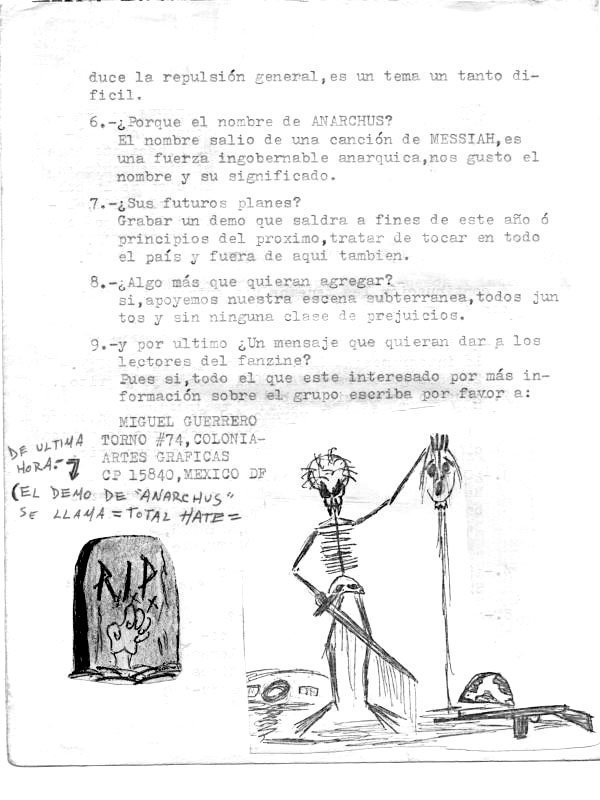 duce la repulsión general,es un tema un tanto di-
ficil.
6.-¿Porque el nombre de ANARCHUS?
El nombre salio de una canción de MESSIAH,es
una fuerza ingobernable anarquica,nos gusto el
nombre y su significado.
7.-¿Sus futuros planes?
Grabar un demo que saldra a fines de este año ó
principios del proximo,tratar de tocar en todo
el país y fuera de aqui tambien.
8.-¿Algo más que quieran agregar?
si,apoyemos nuestra escena subterranea,todos jun
tos y sin ninguna clase de prejuicios.
9.-y por ultimo ¿Un mensaje que quieran dar a los
lectores del fanzine?
Pues si,todo el que este interesado por más in-
formación sobre el grupo escriba por favor a:
MIGUEL GUERRERO
TORNO #74,COLONIA-
ARTES GRAFICAS
CP 15840,MEXICO DF
DE ULTIMA
HORA:-
(EL DEMO DE "ANARCHUS"
SE LLAMA = TOTAL HATE =
R.I.P